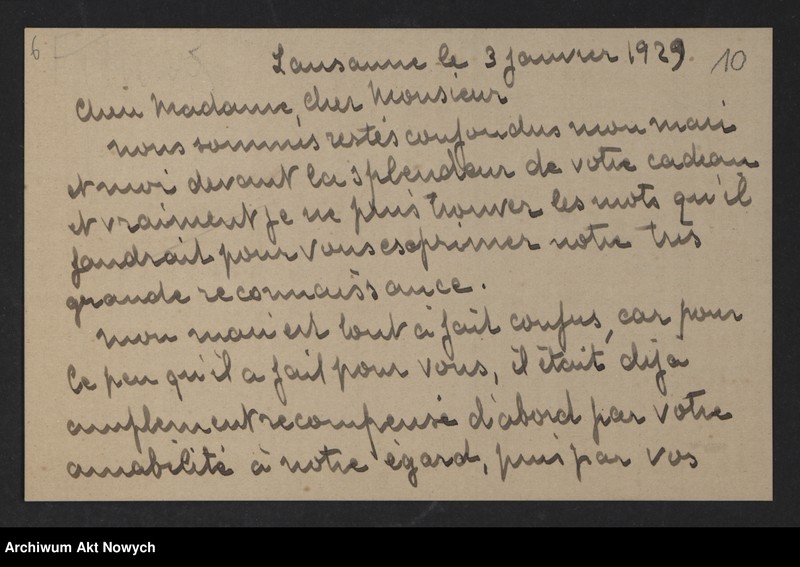 6
10
Lausanne le 3 janvier 1929.
Cher Madame, Cher Monsieur
nous sommes restés confondus mon mari
et moi devant la splendeur de votre cadeau
et vraiment je ne puis trouver les mots qu'il
faudrait pour vous exprimer notre très
grande reconnaissance.
mon mari est tout à fait confus, car pour
le peu qu'il a fait pour vous, il était déjà
amplement recompensé d'abord par votre
amabilité à notre égard, puis par vos
Archiwum Akt Nowych